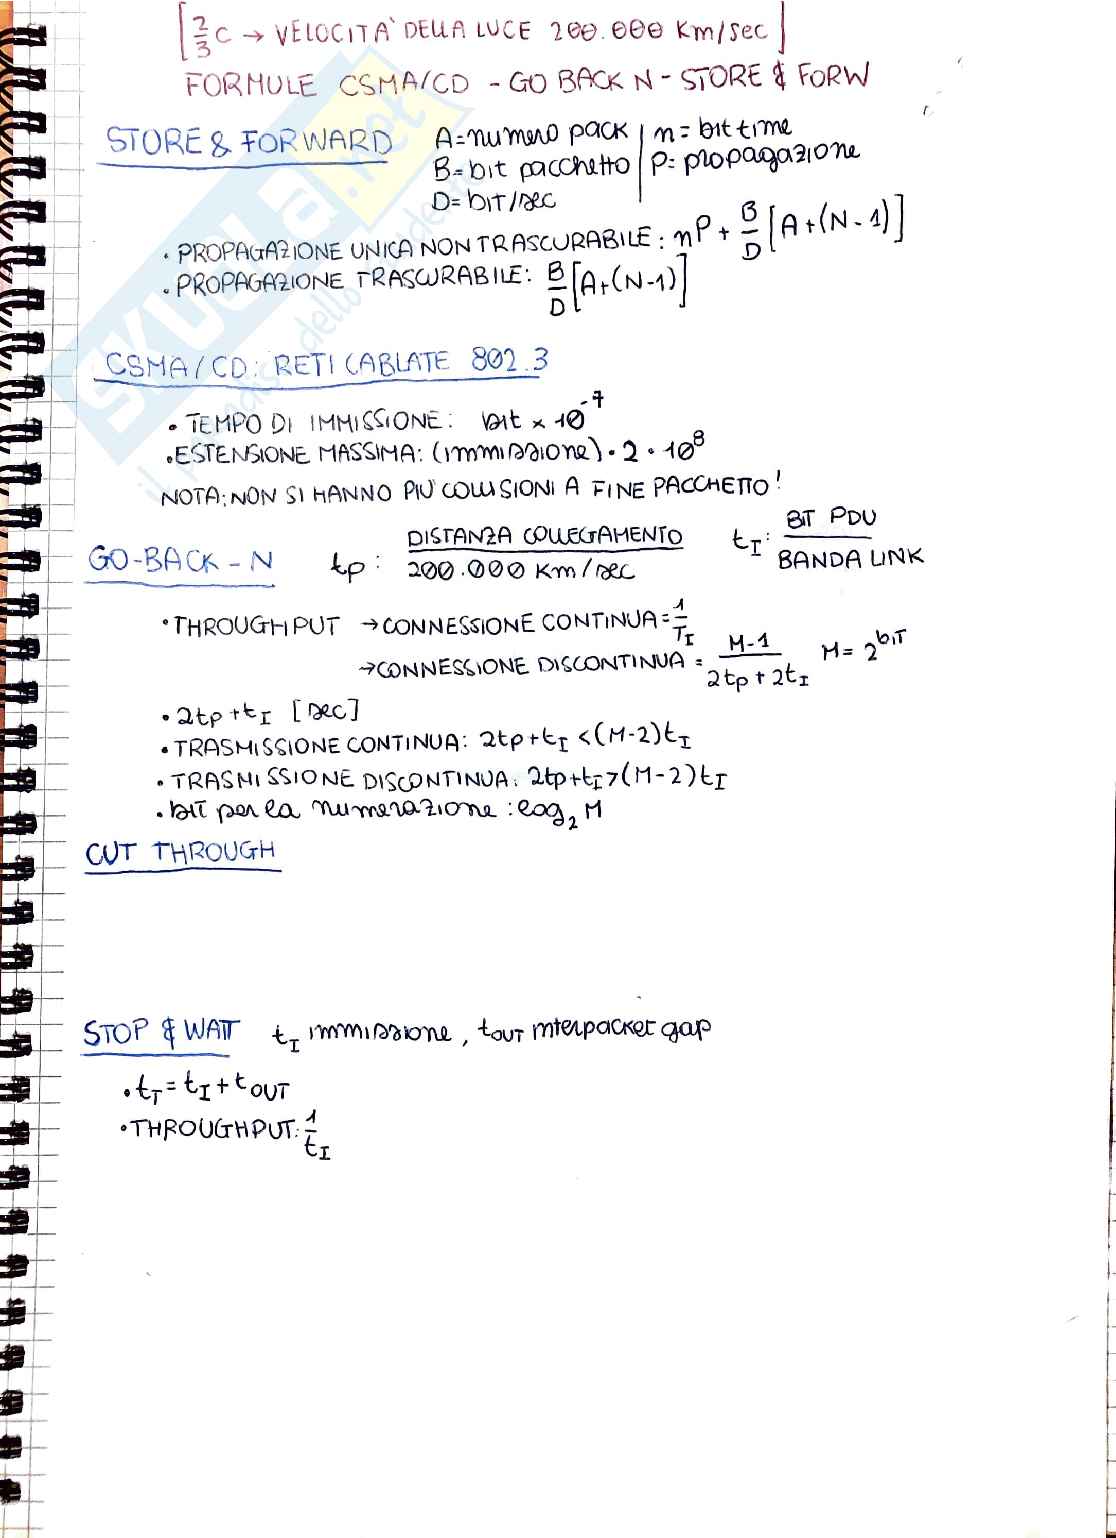 [2/3 C → VELOCITA' DELLA LUCE 200.000 Km/sec]
FORMULE CSMA/CD - GO BACK N - STORE & FORW
STORE & FORWARD A=numero pack | n=bit time
B=bit pacchetto | P=propagazione
D=bit/sec
• PROPAGAZIONE UNICA NON TRASCURABILE: nP + B/D [A+(N-1)]
• PROPAGAZIONE TRASCURABILE: B/D [A+(N-1)]
CSMA/CD: RETI CABLATE 802.3
• TEMPO DI IMMISSIONE: bit × 10^-7
• ESTENSIONE MASSIMA: (immissione) • 2 • 10^8
NOTA: NON SI HANNO PIU' COLLISIONI A FINE PACCHETTO!
GO-BACK-N tp: DISTANZA COLLEGAMENTO / 200.000 Km/sec tI: BIT PDU / BANDA LINK
• THROUGHPUT → CONNESSIONE CONTINUA = 1/TI
→ CONNESSIONE DISCONTINUA = M-1 / 2tp + 2tI M = 2^bit
• 2tp+tI [sec]
• TRASMISSIONE CONTINUA: 2tp+tI < (M-2)tI
• TRASMISSIONE DISCONTINUA: 2tp+tI > (M-2)tI
• bit per la numerazione: log2 M
CUT THROUGH
STOP & WAIT tI immissione, tOUT interpacket gap
• tT = tI + tOUT
• THROUGHPUT: 1/tI
SKUOLA.net
il paradiso dello studente